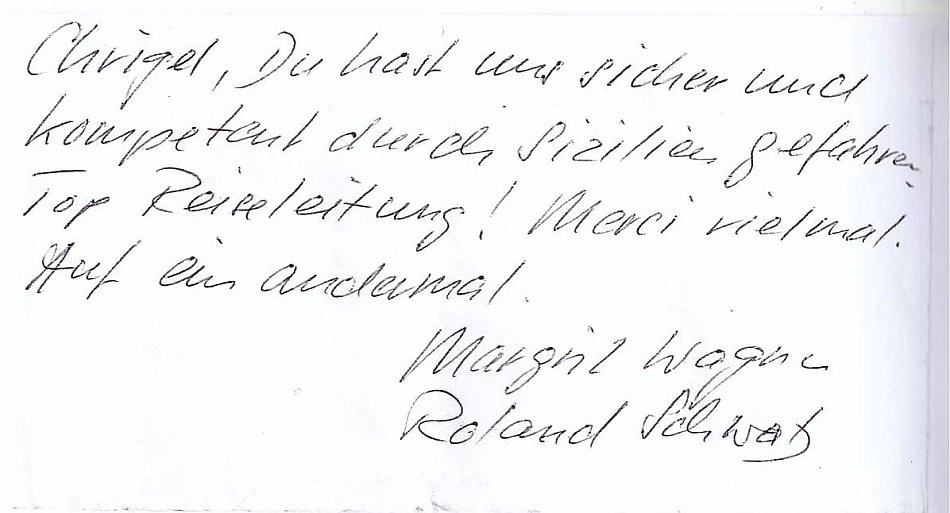 Chrigel, Du hast uns sicher und
kompetent durch Sizilien gefahren.
Top Reiseleitung! Merci vielmal.
Auf ein andermal.
Margrit Wagner
Roland